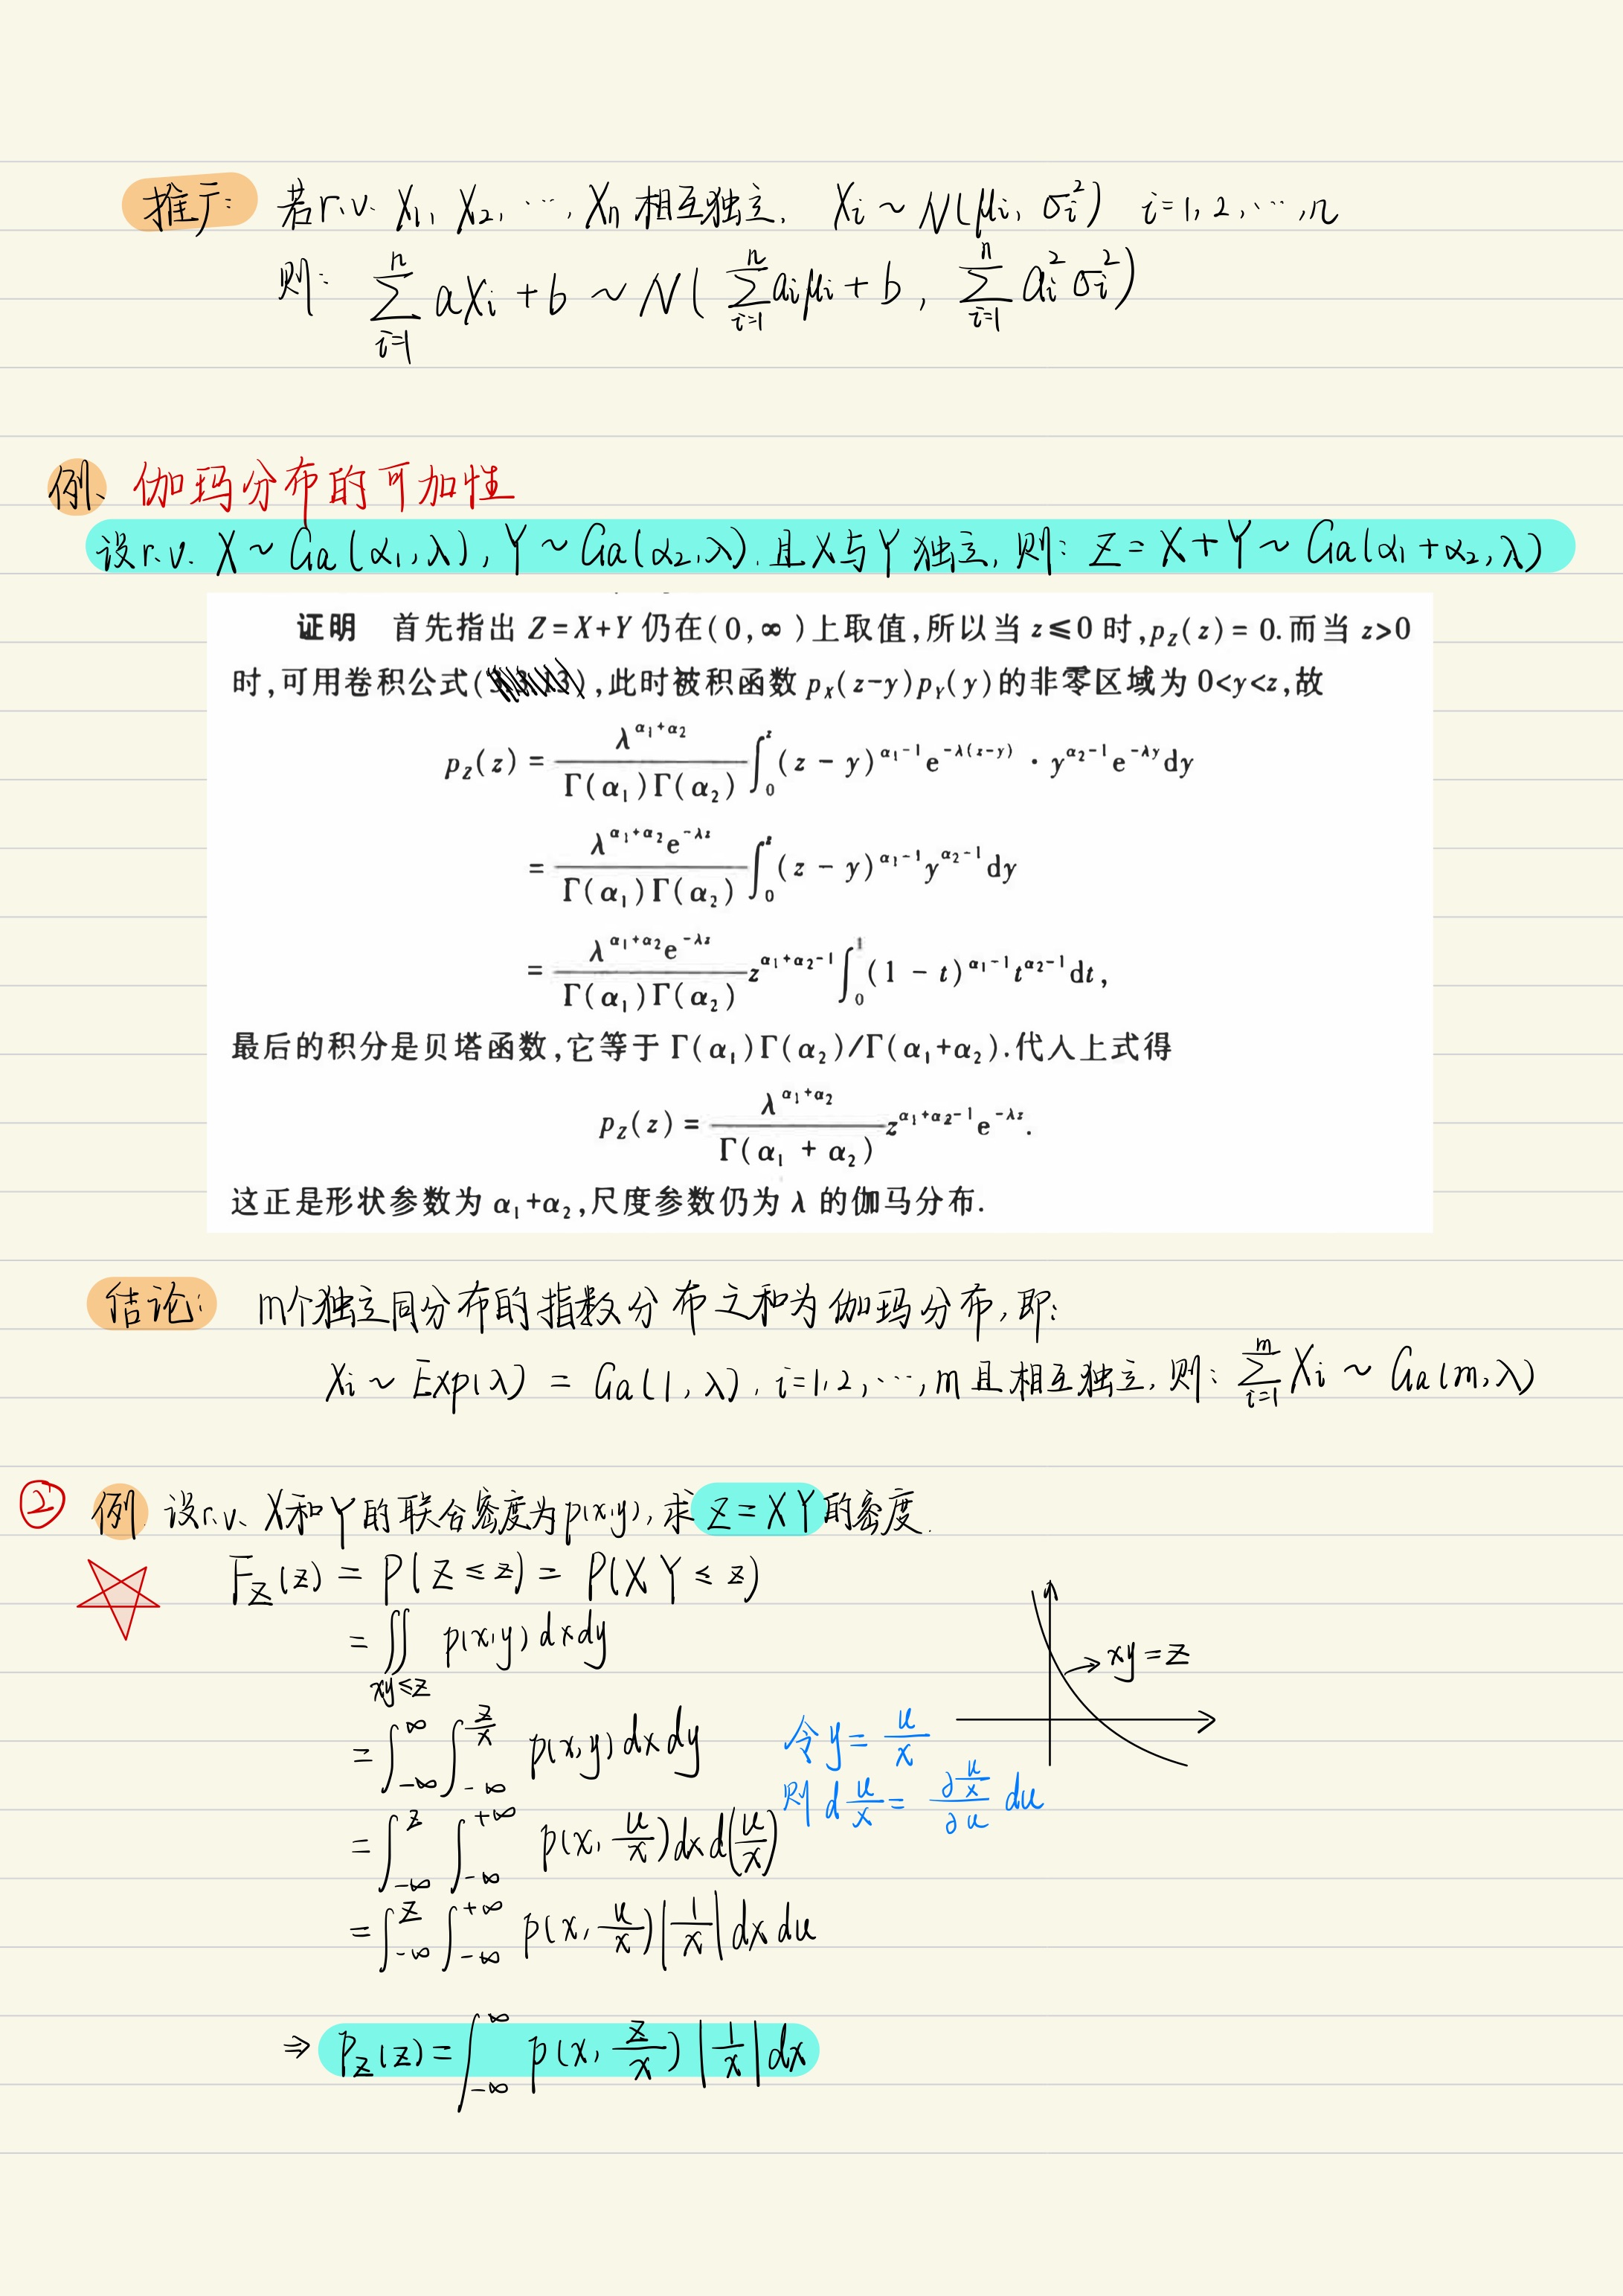 推广: 若r.v. X₁, X₂, ⋯, Xₙ 相互独立, Xᵢ ~ N(μᵢ, σᵢ²) i=1, 2, ⋯, n
则: ∑_{i=1}^{n} aXᵢ + b ~ N( ∑_{i=1}^{n} aᵢμᵢ + b , ∑_{i=1}^{n} aᵢ² σᵢ²)
例、 伽玛分布的可加性
设r.v. X ~ Ga(α₁, λ), Y ~ Ga(α₂, λ). 且X与Y独立, 则: Z = X + Y ~ Ga(α₁ + α₂, λ)
证明 首先指出 Z=X+Y 仍在(0,∞)上取值,所以当 z≤0 时,p_Z(z) = 0.而当 z>0
时,可用卷积公式( ),此时被积函数 p_X(z-y)p_Y(y)的非零区域为 0<y<z,故
p_Z(z) = \frac{λ^{α₁+α₂}}{Γ(α₁)Γ(α₂)} ∫_0^z (z - y)^{α₁-1} e^{-λ(z-y)} · y^{α₂-1} e^{-λy} dy
= \frac{λ^{α₁+α₂} e^{-λz}}{Γ(α₁)Γ(α₂)} ∫_0^z (z - y)^{α₁-1} y^{α₂-1} dy
= \frac{λ^{α₁+α₂} e^{-λz}}{Γ(α₁)Γ(α₂)} z^{α₁+α₂-1} ∫_0^1 (1 - t)^{α₁-1} t^{α₂-1} dt,
最后的积分是贝塔函数,它等于 Γ(α₁)Γ(α₂)/Γ(α₁+α₂).代入上式得
p_Z(z) = \frac{λ^{α₁+α₂}}{Γ(α₁ + α₂)} z^{α₁+α₂-1} e^{-λz}.
这正是形状参数为 α₁+α₂,尺度参数仍为 λ 的伽马分布.
结论: m个独立同分布的指数分布之和为伽玛分布, 即:
Xᵢ ~ Exp(λ) = Ga(1, λ), i=1, 2, ⋯, m 且相互独立, 则: ∑_{i=1}^{m} Xᵢ ~ Ga(m, λ)
② 例 设r.v. X和Y的联合密度为p(x,y), 求 Z = XY 的密度.
F_Z(z) = P(Z ≤ z) = P(XY ≤ z)
= ∬_{xy≤z} p(x,y) dxdy
xy = z
= ∫_{-∞}^{∞} ∫_{-∞}^{\frac{z}{x}} p(x,y) dxdy 令y = \frac{u}{x}
则 d\frac{u}{x} = \frac{∂\frac{u}{x}}{∂u} du
= ∫_{-∞}^{z} ∫_{-∞}^{+∞} p(x, \frac{u}{x}) dx d(\frac{u}{x})
= ∫_{-∞}^{z} ∫_{-∞}^{+∞} p(x, \frac{u}{x}) |\frac{1}{x}| dx du
⇒ P_Z(z) = ∫_{-∞}^{∞} p(x, \frac{z}{x}) |\frac{1}{x}| dx